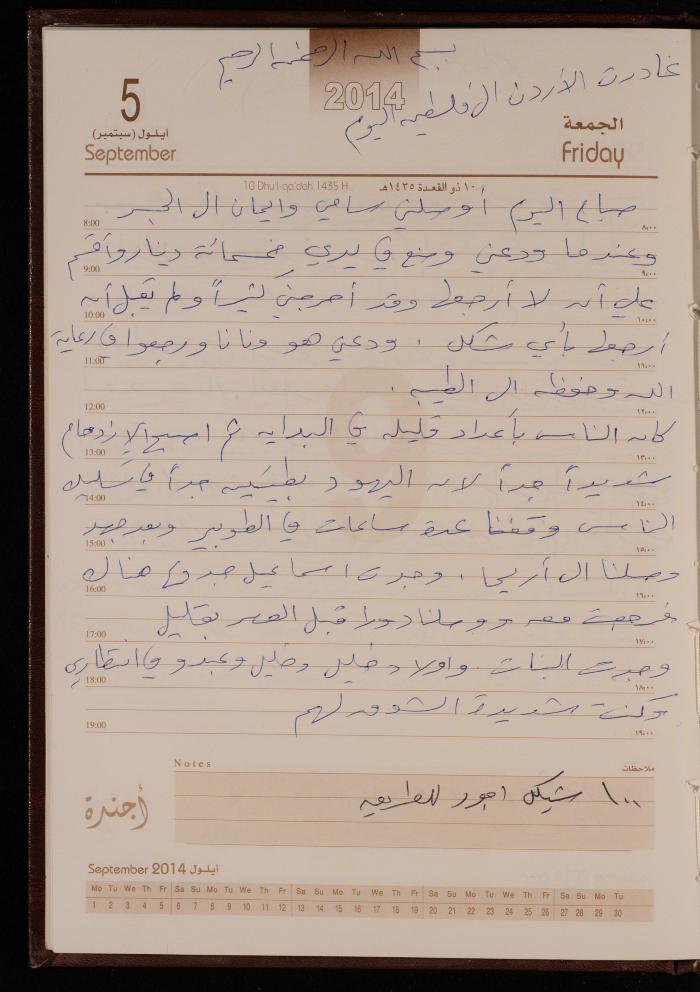 بسم الله الرحمن الرحيم
غادرت الأردن الى فلسطين اليوم
2014
5
أيلول (سبتمبر)
September
الجمعة
Friday
10 Dhu'l-qa'dah 1435 H. ١٠ ذو القعدة ١٤٣٥هـ
صباح اليوم أوصلني سامي وايمان الى الجسر
8:00 ٨،٠٠
وعندما ودعني وضع في يدي خمسمائة دينار وأقسم
9:00 ٩،٠٠
علي أن لا أرجعها وقد أحرجني كثيراً ولم يقبل أن
10:00 ١٠،٠٠
أرجعها بأي شكل . ودعني هو ورجعوا في رعاية
11:00 ١١،٠٠
الله وحفظه الى الطيبه .
12:00 ١٢،٠٠
كان الناس بأعداد قليله في البدايه ثم اصبح الإزدحام
13:00 ١٣،٠٠
شديداً جداً لان اليهود بطيئين جداً في تسليك
14:00 ١٤،٠٠
الناس وقفنا عدة ساعات في الطوابير وبعد جهد
15:00 ١٥،٠٠
وصلنا الى أريحا . وجدت اسماعيل هناك
16:00 ١٦،٠٠
فرجعت معه ووصلنا دورا قبل العصر بقليل
17:00 ١٧،٠٠
وجدت البنات واولاد خليل وخليل وعبدو في انتظاري
18:00 ١٨،٠٠
وكنت شديدة الشوق لهم
19:00 ١٩،٠٠
Notes ملاحظات
١٠٠ شيكل اجور للطريق
أجندة
September 2014 أيلول
Mo Tu We Th Fr Sa Su Mo Tu We Th Fr Sa Su Mo Tu We Th Fr Sa Su Mo Tu We Th Fr Sa Su Mo Tu
1 2 3 4 5 6 7 8 9 10 11 12 13 14 15 16 17 18 19 20 21 22 23 24 25 26 27 28 29 30